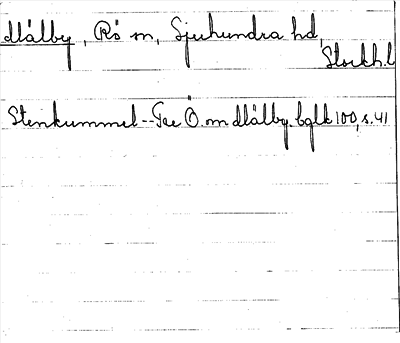 Målby, Rö sn, Sjuhundra hd,
Stockh.l
Stenkummel -- Ö. om Målby. bglk 100, s. 41